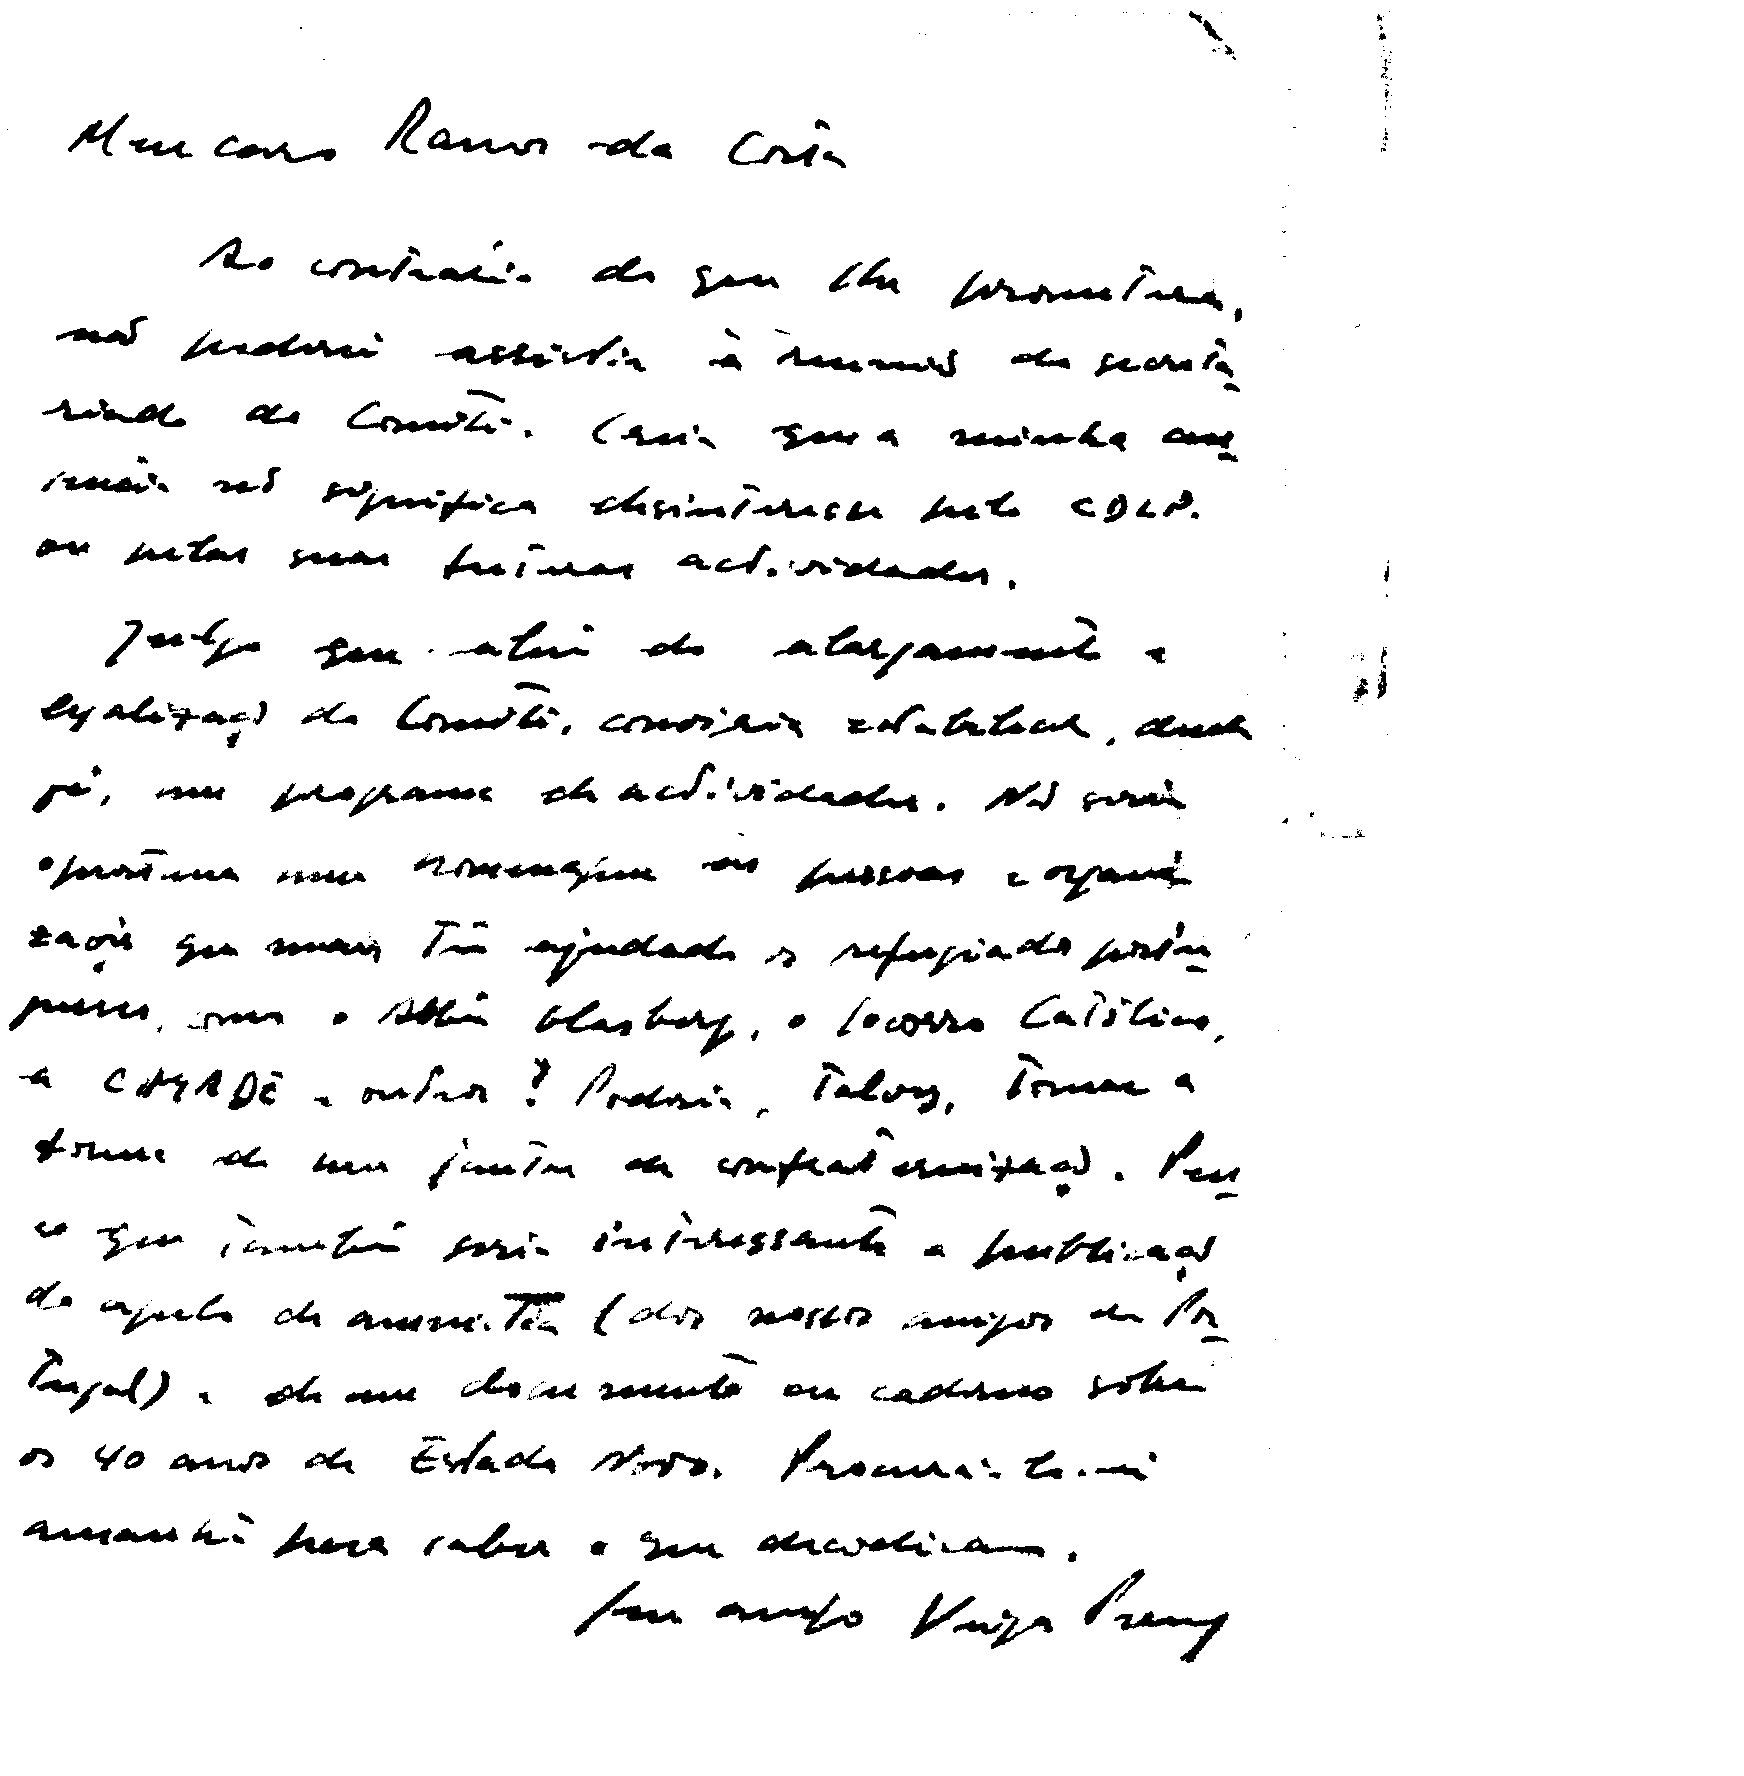 Meu caro Ramos da Costa
Ao contrário do que lhe prometera,
não poderei assistir à reunião do secreta-
riado do Comité. Creia que a minha au-
sência não significa desinteresse pelo CDLP.
ou pelas suas futuras actividades.
Julgo que além do alargamento e
legalização do Comité, conviria estabelecer, desde
já, um programa de actividades. Não seria
oportuna uma homenagem às pessoas e organi
zações que mais têm ajudado os refugiados portu-
gueses, como o Abbé Glasberg, o Socorro Católico,
a CIMADE e outros? Poderia, talvez, tomar a
forma de um jantar de confraternização. Pen-
so que também seria interessante a publicação
do apelo de amnistia (dos nossos amigos de Por-
tugal) e de um documento ou caderno sobre
os 40 anos de Estado Novo. Procurá-lo-ei
amanhã para saber o que decidiram.
Seu amigo Veiga Pereira